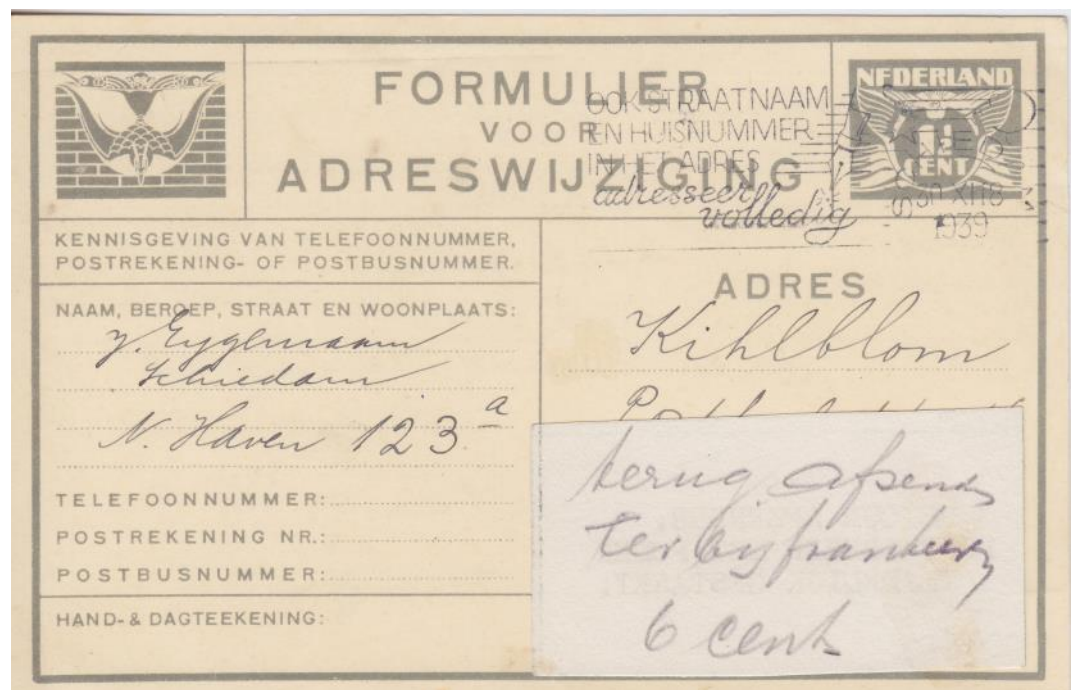 FORMULIER
VOOR
ADRESWIJZIGING
OOK STRAATNAAM
EN HUISNUMMER
IN HET ADRES
adresseer
volledig
NEDERLAND
1½
CENT
30 XII 8
1939
KENNISGEVING VAN TELEFOONNUMMER,
POSTREKENING- OF POSTBUSNUMMER.
NAAM, BEROEP, STRAAT EN WOONPLAATS:
Schiedam
N. Haven 123a
TELEFOONNUMMER:
POSTREKENING NR.:
POSTBUSNUMMER:
HAND- & DAGTEEKENING:
ADRES
Kihlblom
terug afzend
ter bijfrankeering
6 cent